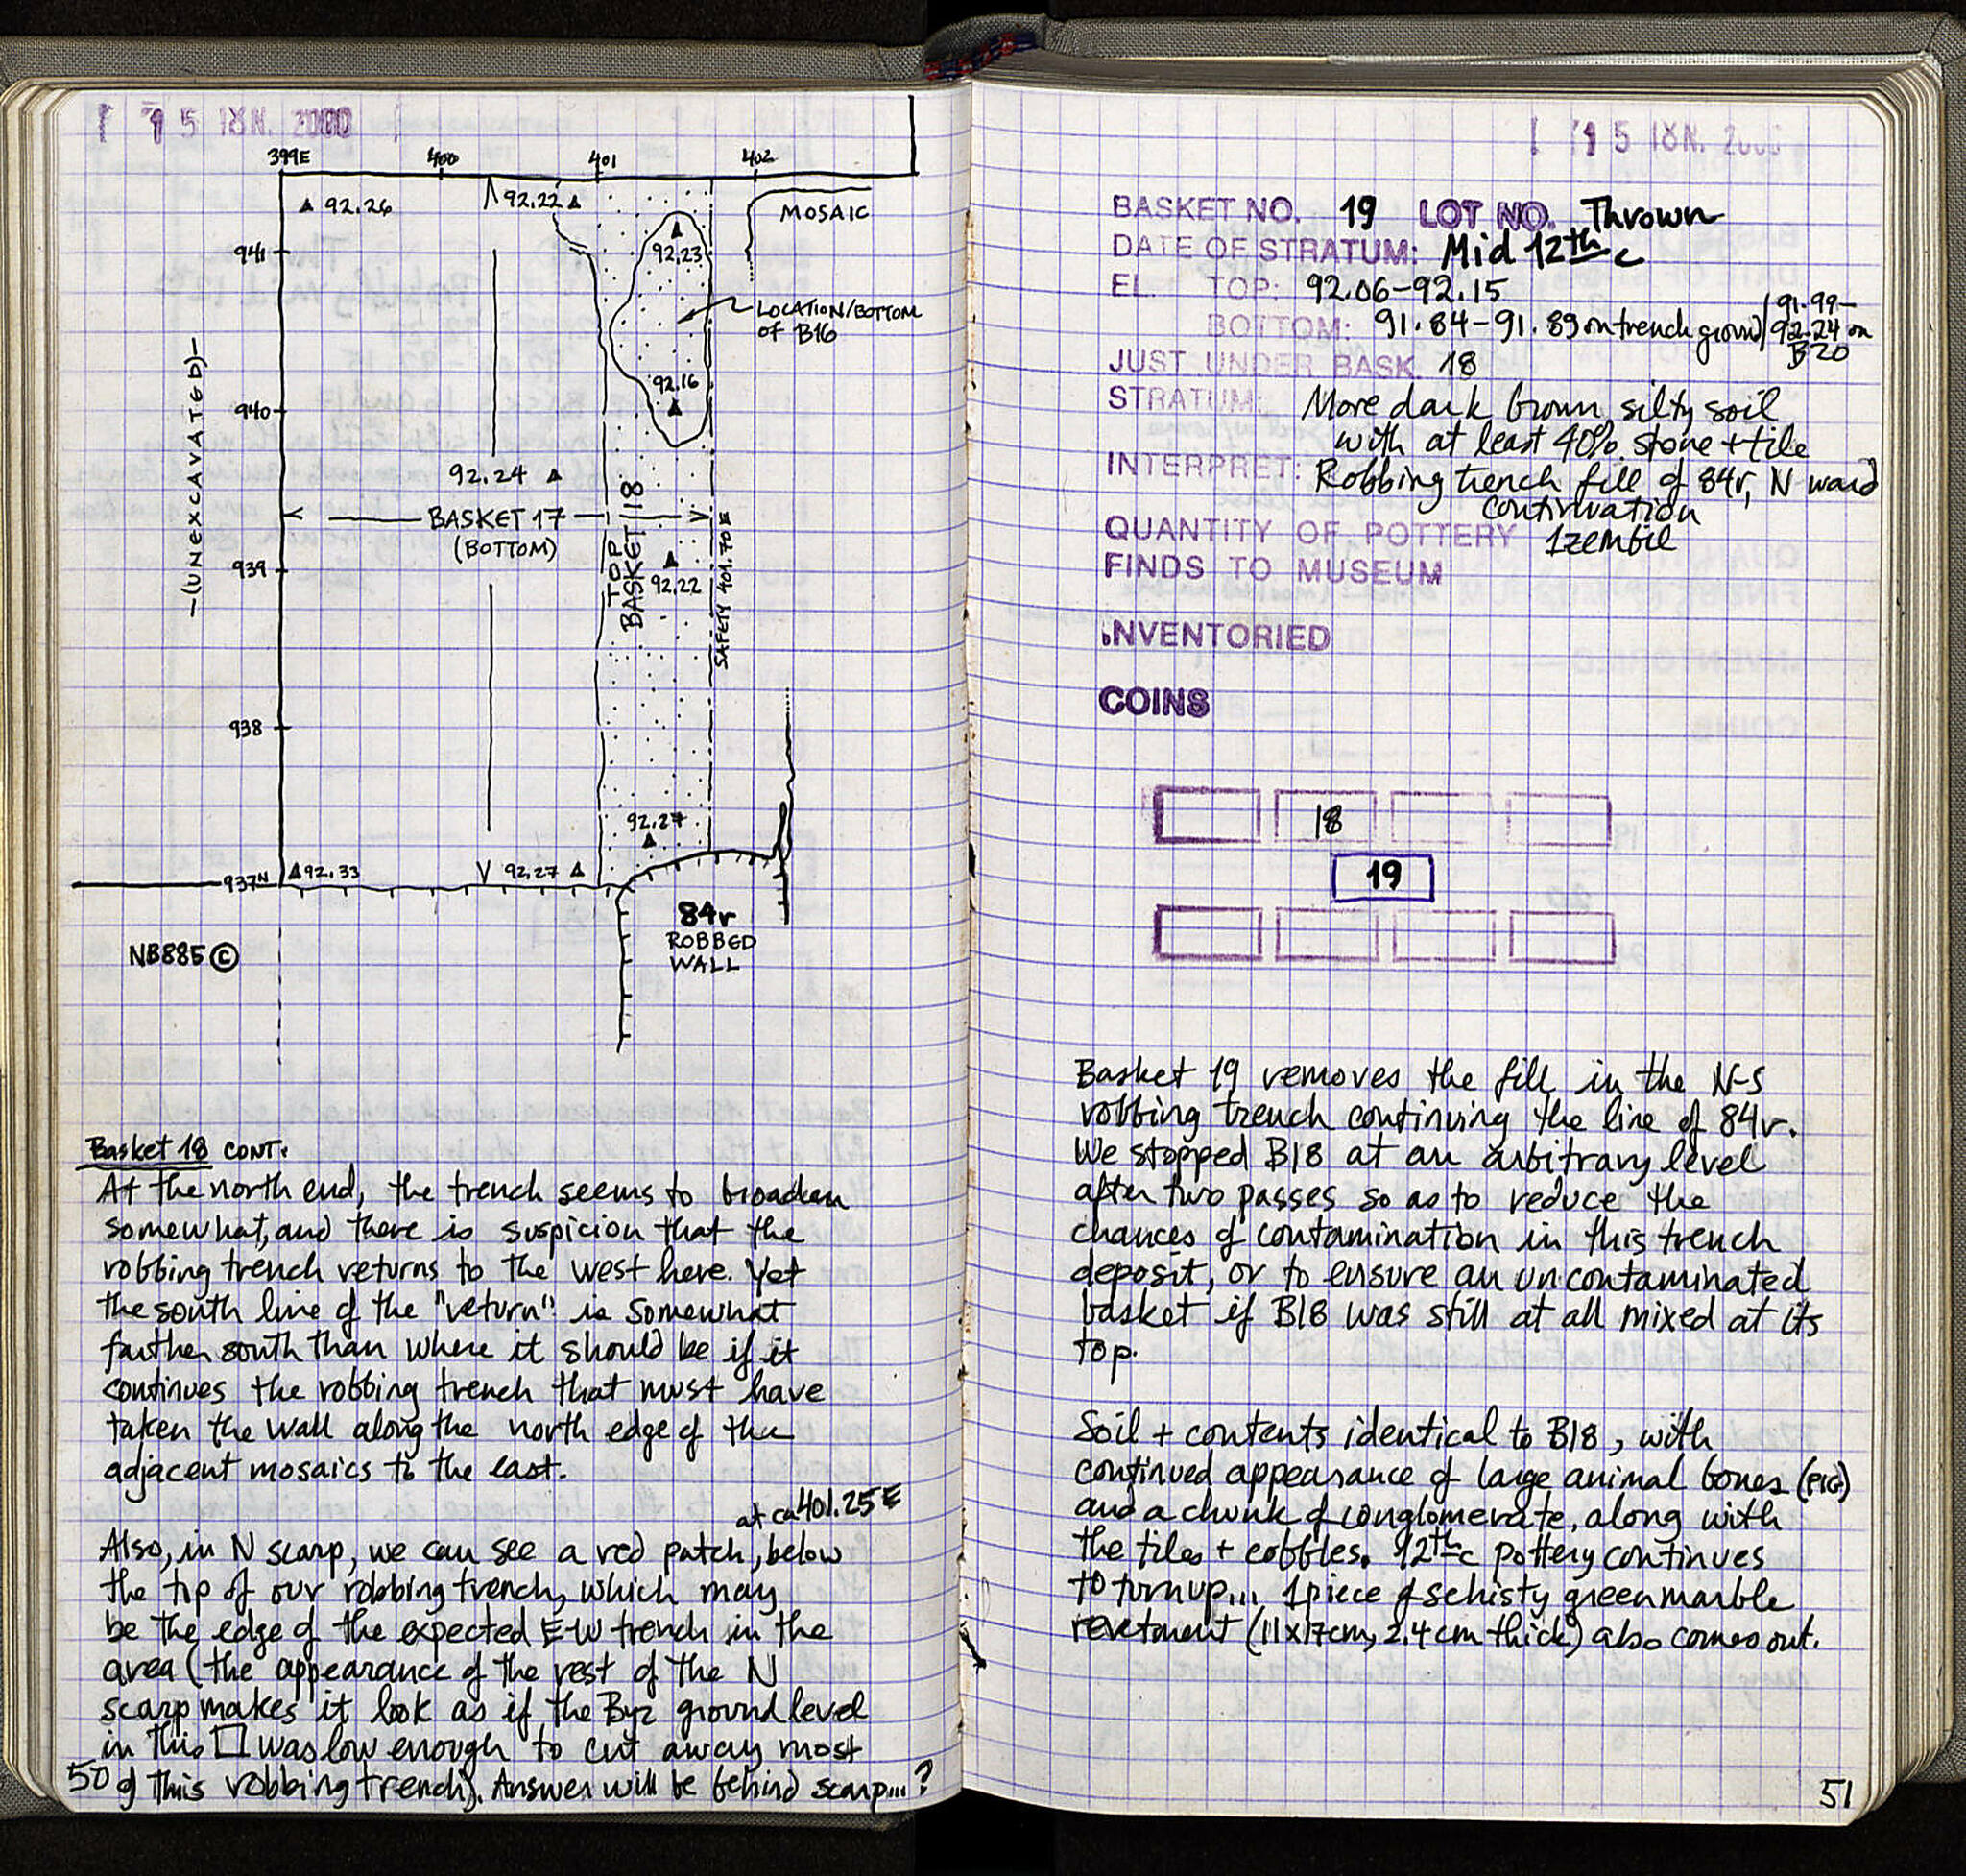 15 ΙΟΥΝ. 2000
399E 400 401 402
▲ 92.26
92.22 ▲
MOSAIC
941
92.23
LOCATION/BOTTOM
OF B16
-(UNEXCAVATED)-
92.16
940
92.24 ▲
BASKET 17
(BOTTOM)
TOP
BASKET 18
SAFETY 401.70 E
939
92.22
938
92.27
937N ▲92.33
92.27 ▲
84r
ROBBED
WALL
NB885 ©
Basket 18 CONT.
At the north end, the trench seems to broaden
somewhat, and there is suspicion that the
robbing trench returns to the west here. Yet
the south line of the "return" is somewhat
farther south than where it should be if it
continues the robbing trench that must have
taken the wall along the north edge of the
adjacent mosaics to the east.
at ca 401.25 E
Also, in N scarp, we can see a red patch, below
the top of our robbing trench, which may
be the edge of the expected E-W trench in the
area (the appearance of the rest of the N
scarp makes it look as if the Byz ground level
in this □ was low enough to cut away most
of this robbing trench). Answer will be behind scarp...?
50
15 ΙΟΥΝ. 2000
BASKET NO. 19 LOT NO. Thrown
DATE OF STRATUM: Mid 12th c
EL. TOP: 92.06-92.15
BOTTOM: 91.84-91.89 on trench ground / 91.99-
92.24 on
B20
JUST UNDER BASK. 18
STRATUM: More dark brown, silty soil
with at least 40% stone + tile
INTERPRET: Robbing trench fill of 84r, N ward
continuation
QUANTITY OF POTTERY 1 zembil
FINDS TO MUSEUM
INVENTORIED
COINS
18
19
Basket 19 removes the fill in the N-S
robbing trench continuing the line of 84r.
We stopped B18 at an arbitrary level
after two passes so as to reduce the
chances of contamination in this trench
deposit, or to ensure an uncontaminated
basket if B18 was still at all mixed at its
top.
Soil + contents identical to B18, with
continued appearance of large animal bones (PIG)
and a chunk of conglomerate, along with
the tiles + cobbles. 12th c pottery continues
to turn up... 1 piece of schisty green marble
revetment (11x17cm, 2.4 cm thick) also comes out.
51